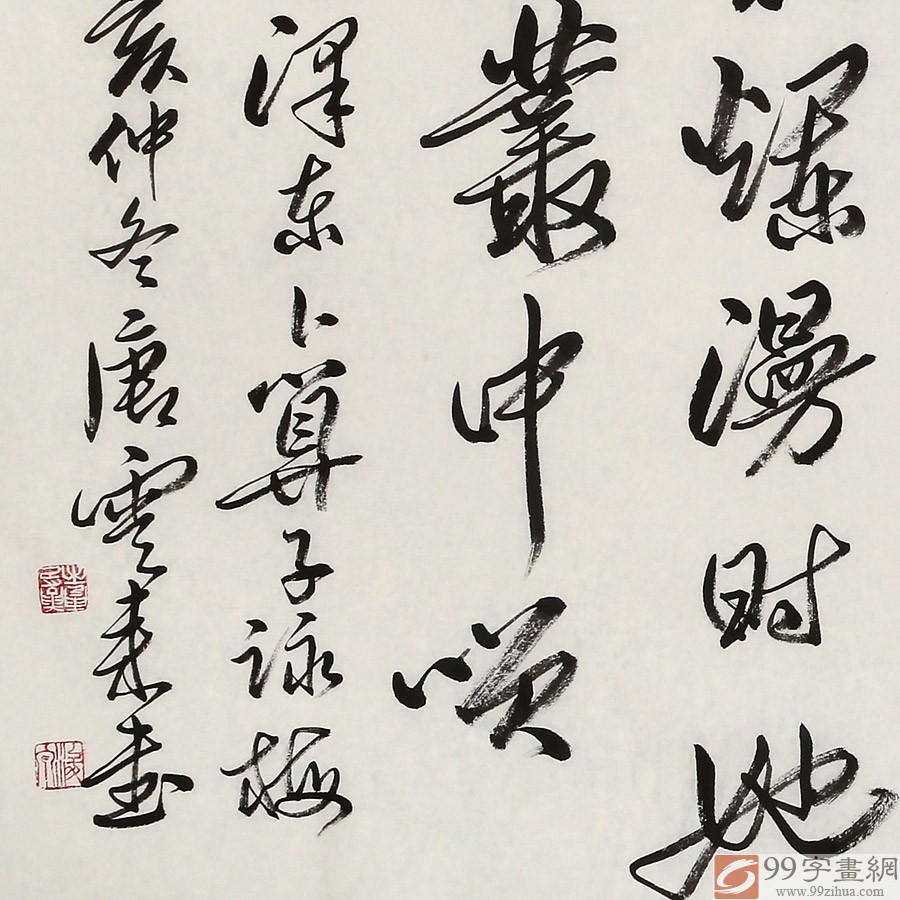 爛漫时她
叢中笑
澤东卜算子詠梅
亥仲冬唐雲来書
99字畫網
www.99zihua.com